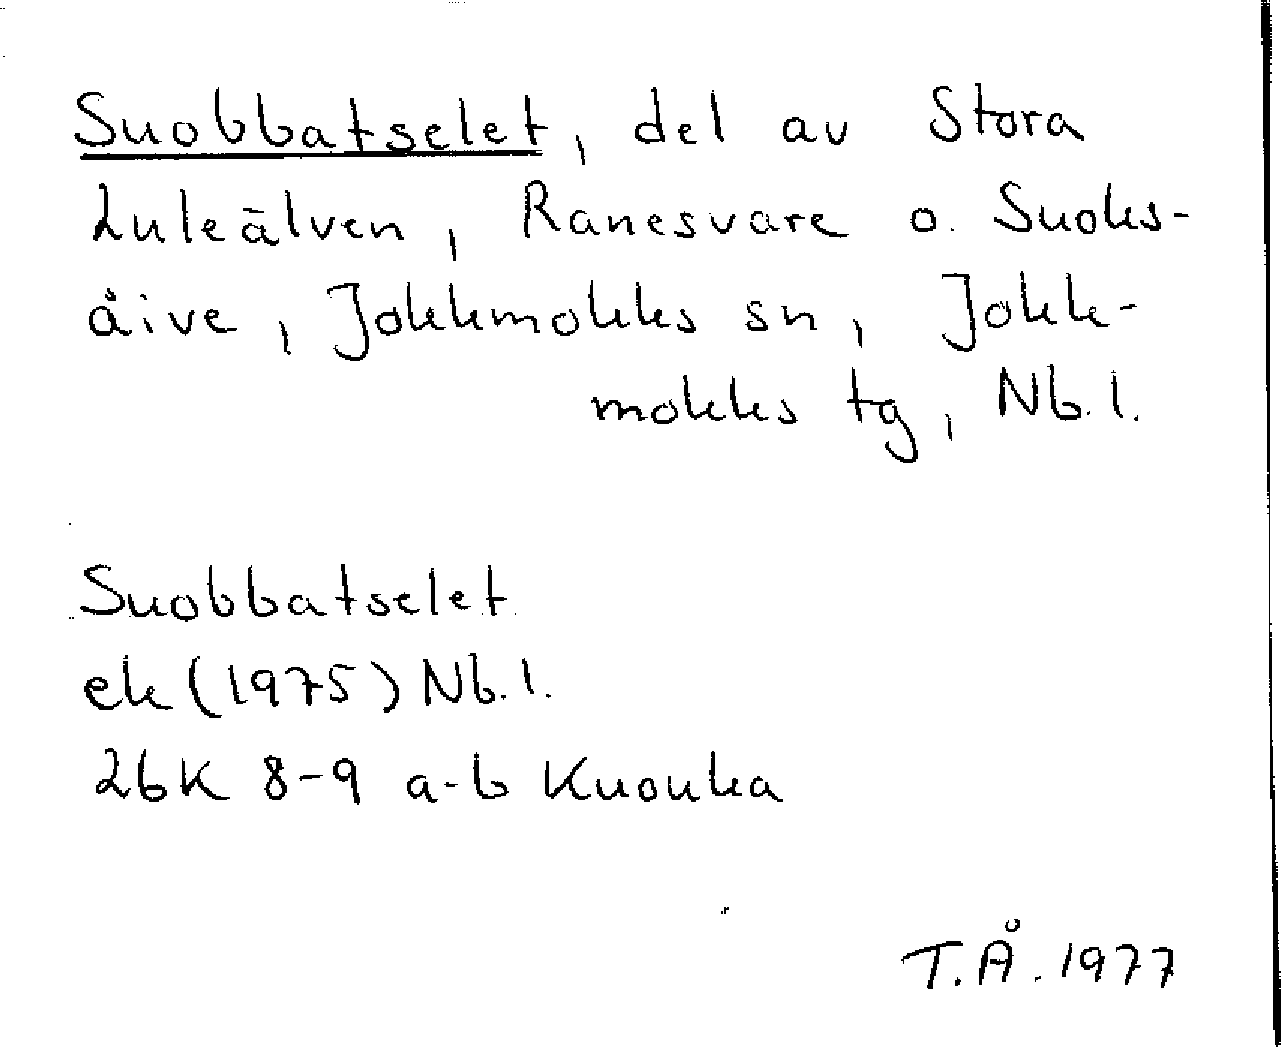 Suobbatselet, del av Stora
Luleälven, Ranesvare o. Suoks-
åive, Jokkmokks sn, Jokk-
mokks tg, Nb. l.
Suobbatselet
ek (1975) Nb. l.
26K 8-9 a-b Kuouka
T.Å. 1977